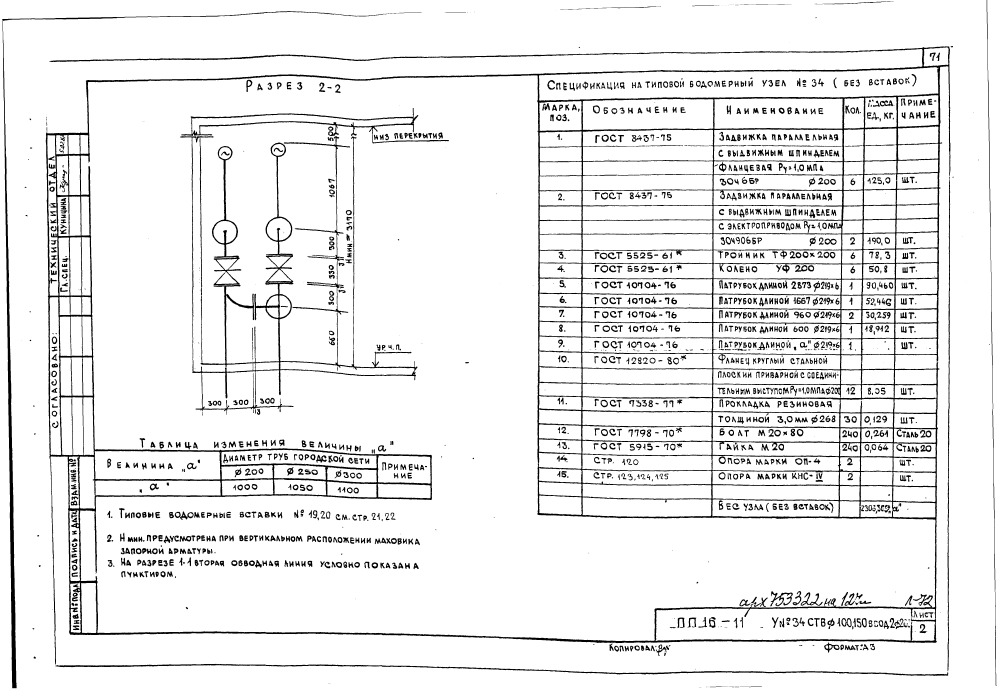 71
РАЗРЕЗ 2-2
НИЗ ПЕРЕКРЫТИЯ
500
1067
300
350
300
660
Hмин = 3170
УР. Ч. П.
300 300 300
3
ТАБЛИЦА ИЗМЕНЕНИЯ ВЕЛИЧИНЫ „а"
ВЕЛИЧИНА „а" ДИАМЕТР ТРУБ ГОРОДСКОЙ СЕТИ ПРИМЕЧА-
НИЕ
ф 200 ф 250 ф300
„а" 1000 1050 1100
1. ТИПОВЫЕ ВОДОМЕРНЫЕ ВСТАВКИ № 19,20 СМ. СТР. 21,22
2. H МИН. ПРЕДУСМОТРЕНА ПРИ ВЕРТИКАЛЬНОМ РАСПОЛОЖЕНИИ МАХОВИКА
ЗАПОРНОЙ АРМАТУРЫ.
3. НА РАЗРЕЗЕ 1-1 ВТОРАЯ ОБВОДНАЯ ЛИНИЯ УСЛОВНО ПОКАЗАНА
ПУНКТИРОМ.
СПЕЦИФИКАЦИЯ НА ТИПОВОЙ ВОДОМЕРНЫЙ УЗЕЛ № 34 ( БЕЗ ВСТАВОК)
МАРКА, ПОЗ. ОБОЗНАЧЕНИЕ НАИМЕНОВАНИЕ КОЛ. МАССА ЕД., КГ. ПРИМЕ-
ЧАНИЕ
1. ГОСТ 8437-75 ЗАДВИЖКА ПАРАЛЛЕЛЬНАЯ
С ВЫДВИЖНЫМ ШПИНДЕЛЕМ
ФЛАНЦЕВАЯ Ру=1,0 МПа
30Ч6БР ф 200 6 125,0 ШТ.
2. ГОСТ 8437-75 ЗАДВИЖКА ПАРАЛЛЕЛЬНАЯ
С ВЫДВИЖНЫМ ШПИНДЕЛЕМ
С ЭЛЕКТРОПРИВОДОМ Ру=1,0МПа
30Ч906БР ф 200 2 190,0 ШТ.
3. ГОСТ 5525-61* ТРОЙНИК ТФ 200×200 6 78,3 ШТ.
4. ГОСТ 5525-61* КОЛЕНО УФ 200 6 50,8 ШТ.
5. ГОСТ 10704-76 ПАТРУБОК ДЛИНОЙ 2873 ф219×6 1 90,460 ШТ.
6. ГОСТ 10704-76 ПАТРУБОК ДЛИНОЙ 1667 ф219×6 1 52,446 ШТ.
7. ГОСТ 10704-76 ПАТРУБОК ДЛИНОЙ 960 ф219×6 2 30,259 ШТ.
8. ГОСТ 10704-76 ПАТРУБОК ДЛИНОЙ 600 ф219×6 1 18,912 ШТ.
9. ГОСТ 10704-76 ПАТРУБОК ДЛИНОЙ „а" ф219×6 1 ШТ.
10. ГОСТ 12820-80* ФЛАНЕЦ КРУГЛЫЙ СТАЛЬНОЙ
ПЛОСКИЙ ПРИВАРНОЙ С СОЕДИНИ-
ТЕЛЬНЫМ ВЫСТУПОМ Ру=1,0МПа ф200 12 8,05 ШТ.
11. ГОСТ 7338-77* ПРОКЛАДКА РЕЗИНОВАЯ
ТОЛЩИНОЙ 3,0мм ф268 30 0,129 ШТ.
12. ГОСТ 7798-70* БОЛТ М20×80 240 0,261 СТАЛЬ 20
13. ГОСТ 5915-70* ГАЙКА М20 240 0,064 СТАЛЬ 20
14. СТР. 120 ОПОРА МАРКИ ОП-4 2 ШТ.
15. СТР. 123,124,125 ОПОРА МАРКИ КНС-IV 2 ШТ.
ВЕС УЗЛА (БЕЗ ВСТАВОК)
СОГЛАСОВАНО:
ТЕХНИЧЕСКИЙ ОТДЕЛ
ГЛ. СПЕЦ. КУНИЦИНА
ИНВ.№ПОДЛ. ПОДПИСЬ И ДАТА ВЗАМ.ИНВ.№
арх 753322 на 127л Л-72
ПП 16-11 У№34 СТВ ф 100,150 ВСОД
ЛИСТ
2
КОПИРОВАЛ: ФОРМАТ: А3